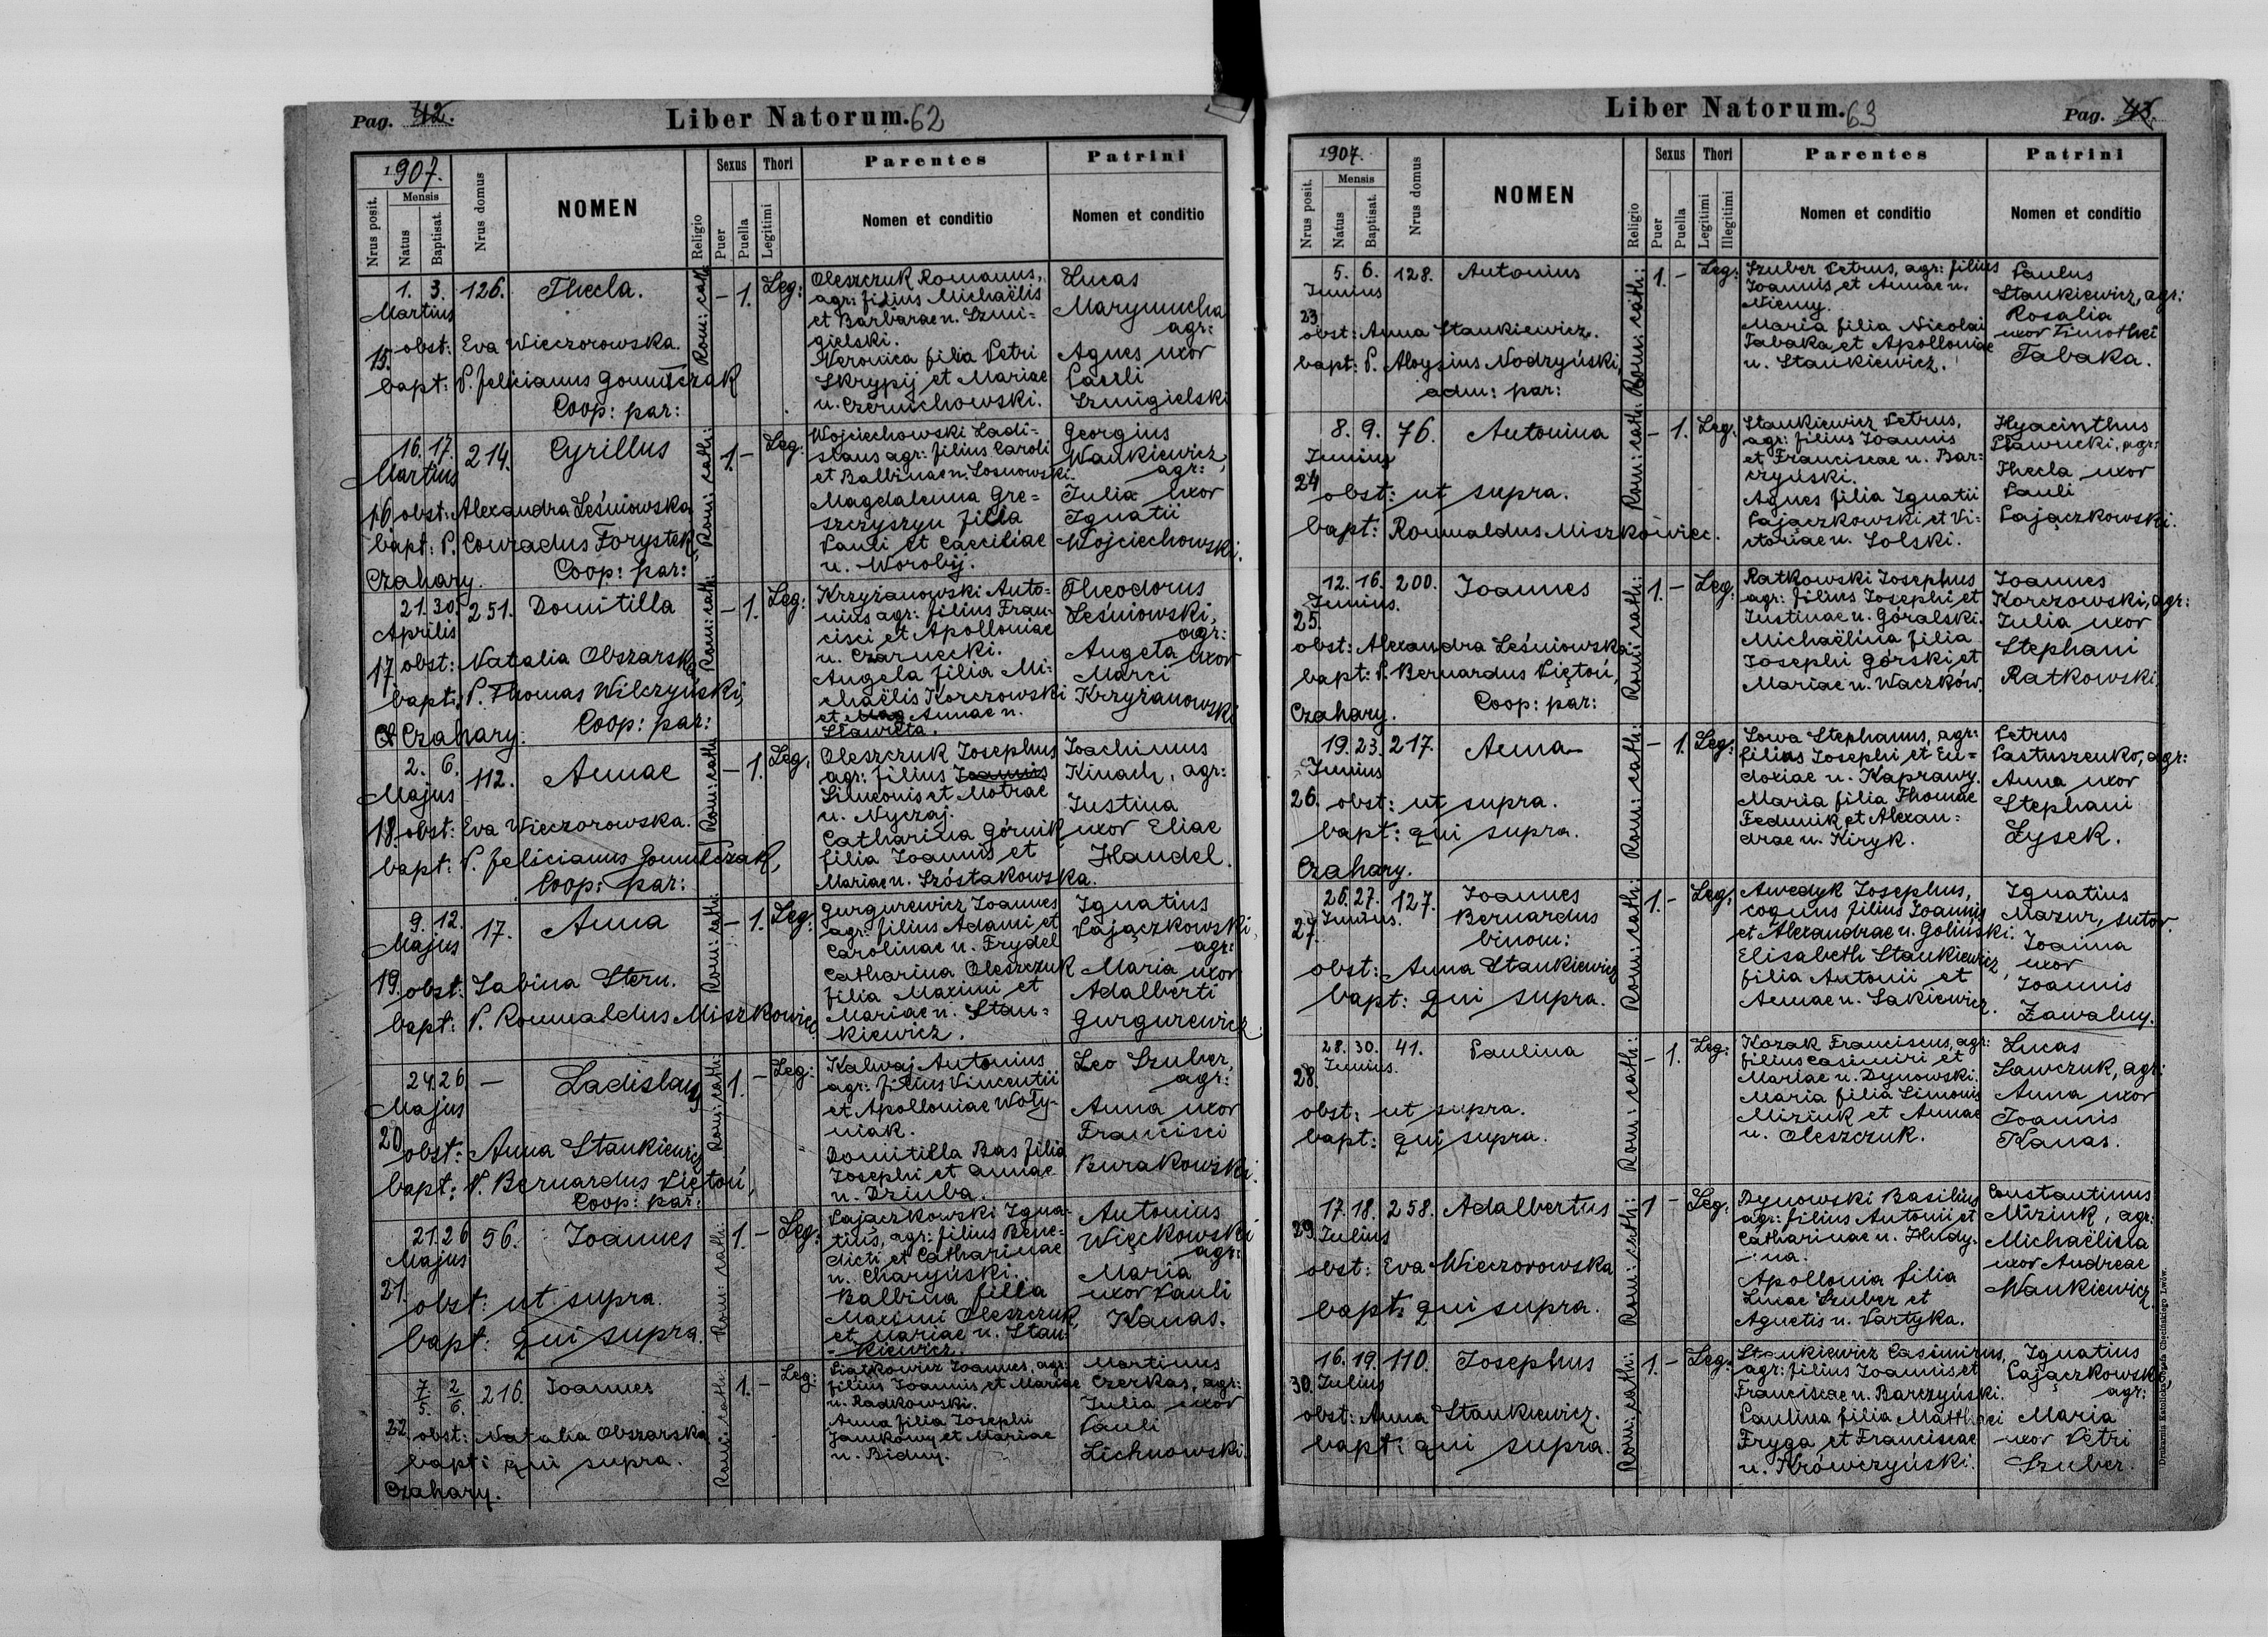 Pag. 42.
Liber Natorum. 62
1907.
Nrus posit.
Mensis
Natus
Baptisat.
Nrus domus
NOMEN
Religio
Sexus
Puer
Puella
Thori
Legitimi
Parentes
Nomen et conditio
Patrini
Nomen et conditio
1. 3. 126. Thecla. Rom: cath: – 1. Leg:
Martius
15. obst: Eva Wieczorowska.
bapt: P. Felicianus Gomułczak
Coop: par:
Oleszczuk Romanus,
agr: filius Michaëlis
et Barbarae n. Szmi=
gielski.
Veronica filia Petri
Skrypij et Mariae
n. Czernichowski.
Lucas
Marymucha
agr:
Agnes uxor
Pauli
Szmigielski
16. 17. 214. Cyrillus Rom: cath: 1. – Leg:
Martius
16 obst: Alexandra Leśniowska
bapt: P. Conradus Forystek,
Czahary. Coop: par:
Wojciechowski Ladi=
slaus agr: filius Caroli
et Balbinae n. Sosnowski.
Magdalenna Gre=
szczyszyn filia
Pauli et Caeciliae
n. Worobij.
Georgius
Wankiewicz,
agr:
Julia uxor
Ignatii
Wojciechowski.
21. 30. 251. Domitilla Rom: cath: – 1. Leg:
Aprilis
17. obst: Natalia Obszarska
bapt: P. Thomas Wilczyński,
Czahary. Coop: par:
Krzyżanowski Anto=
nius agr: filius Fran=
cisci et Apolloniae
n. Czarnecki.
Angela filia Mi=
chaëlis Korczowski
et Mag Annae n.
Sławuta.
Theodorus
Leśniowski,
agr:
Angela uxor
Marci
Krzyżanowski
2. 6. 112. Annae Rom: cath: – 1. Leg:
Majus
18. obst: Eva Wieczorowska.
bapt: P. Felicianus Gomułczak,
Coop: par:
Oleszczuk Josephus
agr: filius Joannis
Simeonis et Motrae
n. Nyczaj.
Catharina Górnik
filia Joannis et
Mariae n. Szóstakowska.
Joachimus
Kinach, agr:
Justina
uxor Eliae
Handel.
9. 12. 17. Anna Rom: cath: – 1. Leg:
Majus
19. obst: Sabina Stern.
bapt: P. Romualdus Miszkowiec
Gurgurewicz Joannes
agr: filius Adami et
Carolinae n. Frydel
Catharina Oleszczuk
filia Maximi et
Mariae n. Stan=
kiewicz.
Ignatius
Pajączkowski,
agr:
Maria uxor
Adalberti
Gurgurewicz
24. 26. – Ladislaus Rom: cath: 1. – Leg:
Majus
20 obst: Anna Stankiewicz
bapt: P. Bernardus Piętoń,
Coop: par:
Kalwaj Antonius
agr: filius Vincentii
et Apolloniae Woły=
niak.
Domitilla Bas filia
Josephi et Annae
n. Dziuba.
Leo Szuber,
agr:
Anna uxor
Francisci
Burakowski.
21. 26 56. Joannes Rom: cath: 1. – Leg:
Majus
21. obst: ut supra.
bapt: qui supra.
Pajączkowski Igna=
tius, agr: filius Bene=
dicti et Catharinae
n. Charyński.
Balbina filia
Maximi Oleszczuk,
et Mariae n. Stan=
kiewicz.
Antonius
Więckowski
agr:
Maria
uxor Pauli
Kanas.
7/5. 2/6. 216. Joannes Rom: cath: 1. – Leg:
22. obst: Natalia Obszarska
bapt: qui supra.
Czahary.
Piatkowicz Joannes, agr:
filius Joannis et Mariae
n. Radkowski.
Anna filia Josephi
Jamkowy et Mariae
n. Bidny.
Martinus
Czerkas, agr:
Julia uxor
Pauli
Lichnowski.
Liber Natorum. 63
Pag. 43.
1907.
Nrus posit.
Mensis
Natus
Baptisat.
Nrus domus
NOMEN
Religio
Sexus
Puer
Puella
Thori
Legitimi
Illegitimi
Parentes
Nomen et conditio
Patrini
Nomen et conditio
5. 6. 128. Antonius Rom: cath: 1. – Leg:
Junius
23 obst: Anna Stankiewicz.
bapt: P. Aloysius Nodzyński,
adm: par:
Szuber Petrus, agr: filius
Joannis et Annae n.
Niemy.
Maria filia Nicolai
Tabaka et Apolloniae
n. Stankiewicz.
Paulus
Stankiewicz, agr:
Rosalia
uxor Timothei
Tabaka.
8. 9. 76. Antonina Rom: cath: – 1. Leg:
Junius
24 obst: ut supra.
bapt: Romualdus Miszkowiec.
Stankiewicz Petrus,
agr: filius Joannis
et Franciscae n. Bar=
czyński.
Agnes filia Ignatii
Pajączkowski et Vi=
ctoriae n. Solski.
Hyacinthus
Sławucki, agr:
Thecla uxor
Pauli
Pajączkowski.
12. 16. 200. Joannes Rom: cath: 1. – Leg:
Junius.
25. obst: Alexandra Leśniowska
bapt: P. Bernardus Piętoń,
Czahary. Coop: par:
Ratkowski Josephus
agr: filius Josephi et
Justinae n. Góralski.
Michaëlina filia
Josephi Górski et
Mariae n. Waczków.
Joannes
Korczowski, agr:
Julia uxor
Stephani
Ratkowski.
19. 23. 217. Anna Rom: cath: – 1. Leg:
Junius
26. obst: ut supra.
bapt: qui supra.
Czahary.
Sowa Stephanus, agr:
filius Josephi et Eu=
doxiae n. Kaprawy.
Maria filia Thomae
Fedunik et Alexan=
drae n. Kiryk.
Petrus
Pastuszenko, agr:
Anna uxor
Stephani
Łysek.
26. 27. 127. Joannes Rom: cath: 1. – Leg:
27 Junius. Bernardus
binom:
obst: Anna Stankiewicz
bapt: qui supra.
Awedyk Josephus,
coquus filius Joannis
et Alexandrae n. Goliński.
Elisabeth Stankiewicz,
filia Antonii et
Annae n. Sakiewicz.
Ignatius
Mazur, sutor.
Joanna
uxor
Joannis
Zawalny.
28. 30. 41. Paulina Rom: cath: – 1. Leg:
28. Junius.
obst: ut supra.
bapt: qui supra.
Kozak Franciscus, agr:
filius Casimiri et
Mariae n. Dynowski.
Maria filia Simonis
Miziuk et Annae
n. Oleszczuk.
Lucas
Sawczuk, agr:
Anna uxor
Joannis
Kanas.
17. 18. 258. Adalbertus Rom: cath: 1 – Leg:
29. Julius
obst: Eva Wieczorowska
bapt: qui supra.
Dynowski Basilius
agr: filius Antonii et
Catharinae n. Hudy.
=na.
Apollonia filia
Lucae Szuber et
Agnetis n. Partyka.
Constantinus
Miziuk, agr:
Michaëlina
uxor Andreae
Wankiewicz
16. 19. 110. Josephus Rom: cath: 1. – Leg:
30. Julius
obst: Anna Stankiewicz.
bapt: qui supra.
Stankiewicz Casimirus,
agr: filius Joannis et
Franciscae n. Barczyński.
Paulina filia Matthaei
Fryga et Franciscae
n. Krówczyński.
Ignatius
Pajączkowski,
agr:
Maria
uxor Petri
Szuber.
Drukarnia Katolicka Józefa Chęcińskiego Lwów.